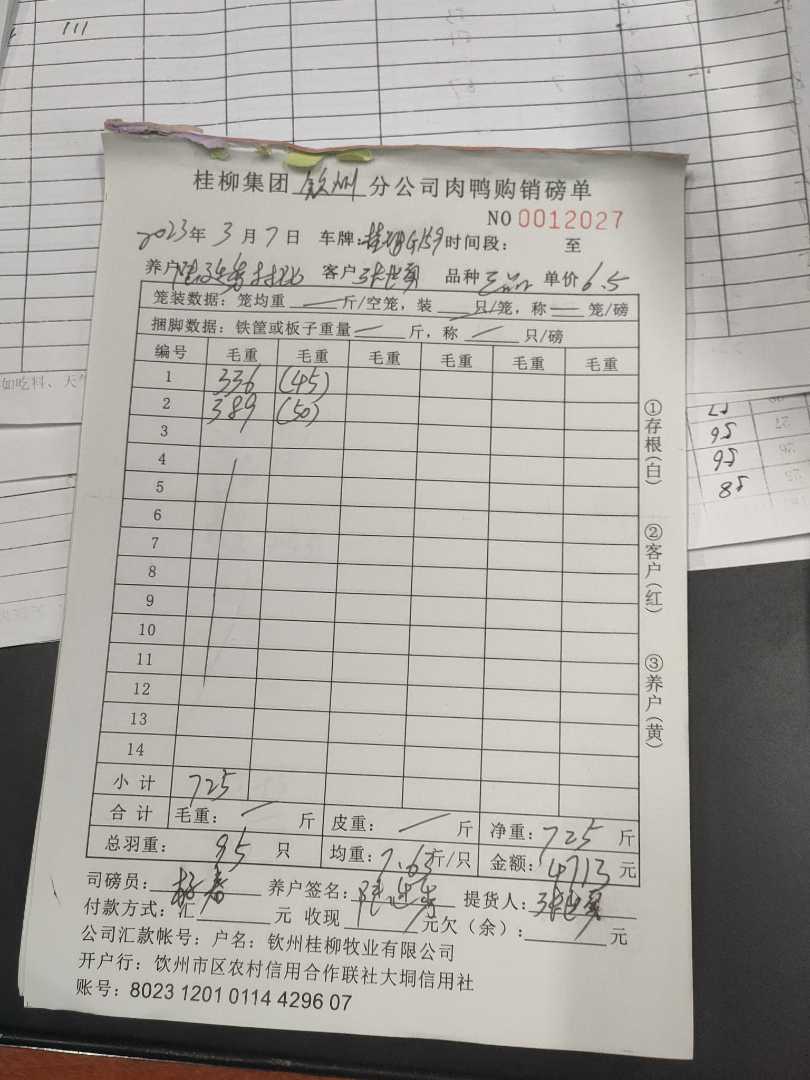 桂柳集团 钦州 分公司肉鸭购销磅单
NO 0012027
2023年 3月 7日 车牌: 时间段: 至
养户 客户 品种 单价 6.5
笼装数据: 笼均重 斤/空笼, 装 只/笼, 称 笼/磅
捆脚数据: 铁筐或板子重量 斤, 称 只/磅
编号 毛重 毛重 毛重 毛重 毛重 毛重
1 336 (45)
2 389 (50)
3
4
5
6
7
8
9
10
11
12
13
14
小计 725
合计 毛重: 斤 皮重: 斤 净重: 725 斤
总羽重: 95 只 均重: 7.63 斤/只 金额: 4713 元
司磅员: 养户签名: 提货人:
付款方式: 汇 元 收现 元欠(余): 元
公司汇款帐号: 户名: 钦州桂柳牧业有限公司
开户行: 饮州市区农村信用合作联社大垌信用社
账号: 8023 1201 0114 4296 07
①存根(白)
②客户(红)
③养户(黄)